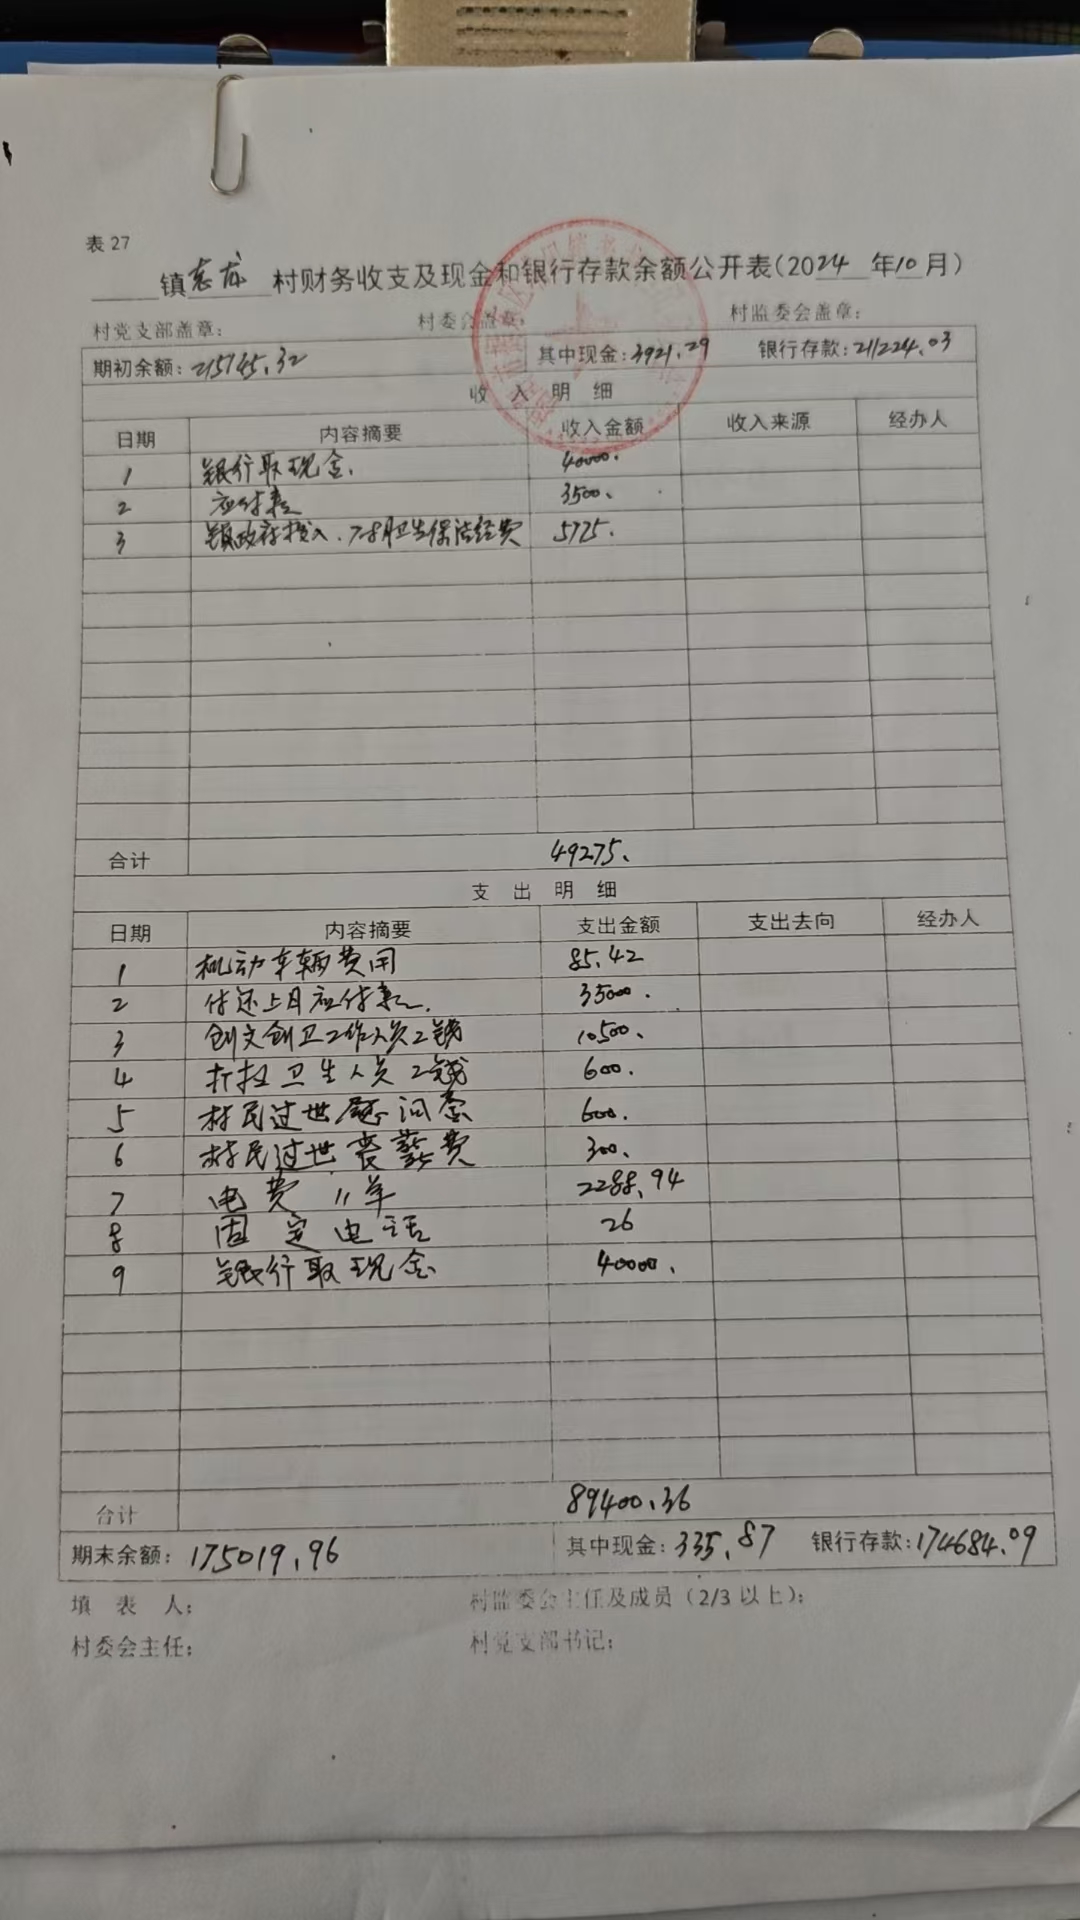 表 27
镇志成 村财务收支及现金和银行存款余额公开表(2024 年10月)
村党支部盖章: 村委会盖章: 村监委会盖章:
期初余额: 215145.32 其中现金: 3921.29 银行存款: 211224.03
收 入 明 细
日期 内容摘要 收入金额 收入来源 经办人
1 银行取现金. 40000.
2 应付款 3500.
3 镇政府拨入. 保洁经费 5775.
合计 49275.
支 出 明 细
日期 内容摘要 支出金额 支出去向 经办人
1 机动车辆费用 85.42
2 付还上月应付款. 35000.
3 创文创卫工作人员工钱 10500.
4 打扫卫生人员工钱 600.
5 村民过世慰问金 600.
6 村民过世丧葬费 300.
7 电费 11单 2288.94
8 固定电话 26
9 银行取现金 40000.
合计 89400.36
期末余额: 175019.96 其中现金: 335.87 银行存款: 174684.09
填 表 人: 村监委会主任及成员(2/3 以上):
村委会主任: 村党支部书记: